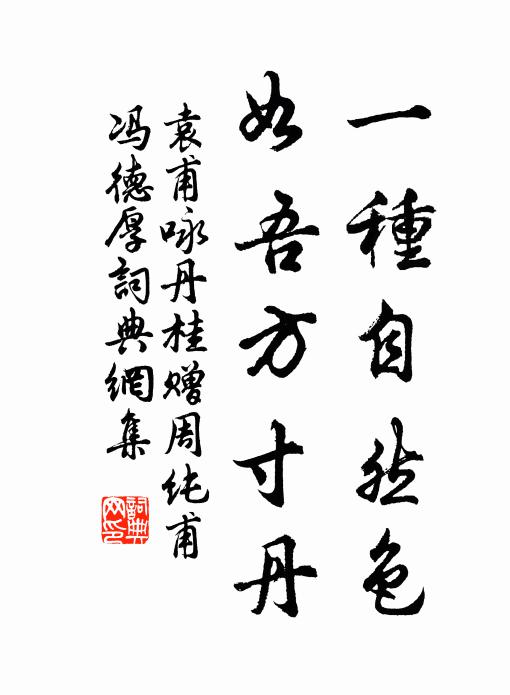 一種自然色
如吾方寸丹
袁甫咏丹桂贈周純甫
馮德厚詞典網集
詞典
网印